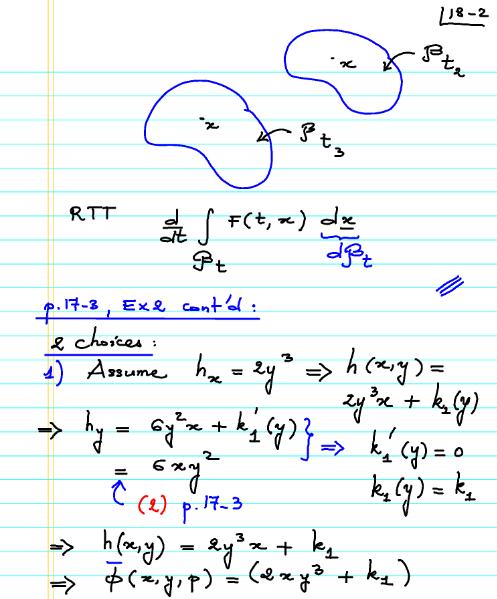 18-2
·x
𝓑t₂
·x
𝓑t₃
RTT d/dt ∫𝓑t F(t, x) dx
d𝓑t
p.17-3, Ex2 cont'd :
2 choices :
1) Assume hₓ = 2y³ ⇒ h(x,y) =
2y³x + k₁(y)
⇒ h_y = 6y²x + k₁'(y) } ⇒ k₁'(y) = 0
= 6xy²
k₁(y) = k₁
(2) p.17-3
⇒ h(x,y) = 2y³x + k₁
⇒ ϕ(x,y,p) = (2xy³ + k₁)